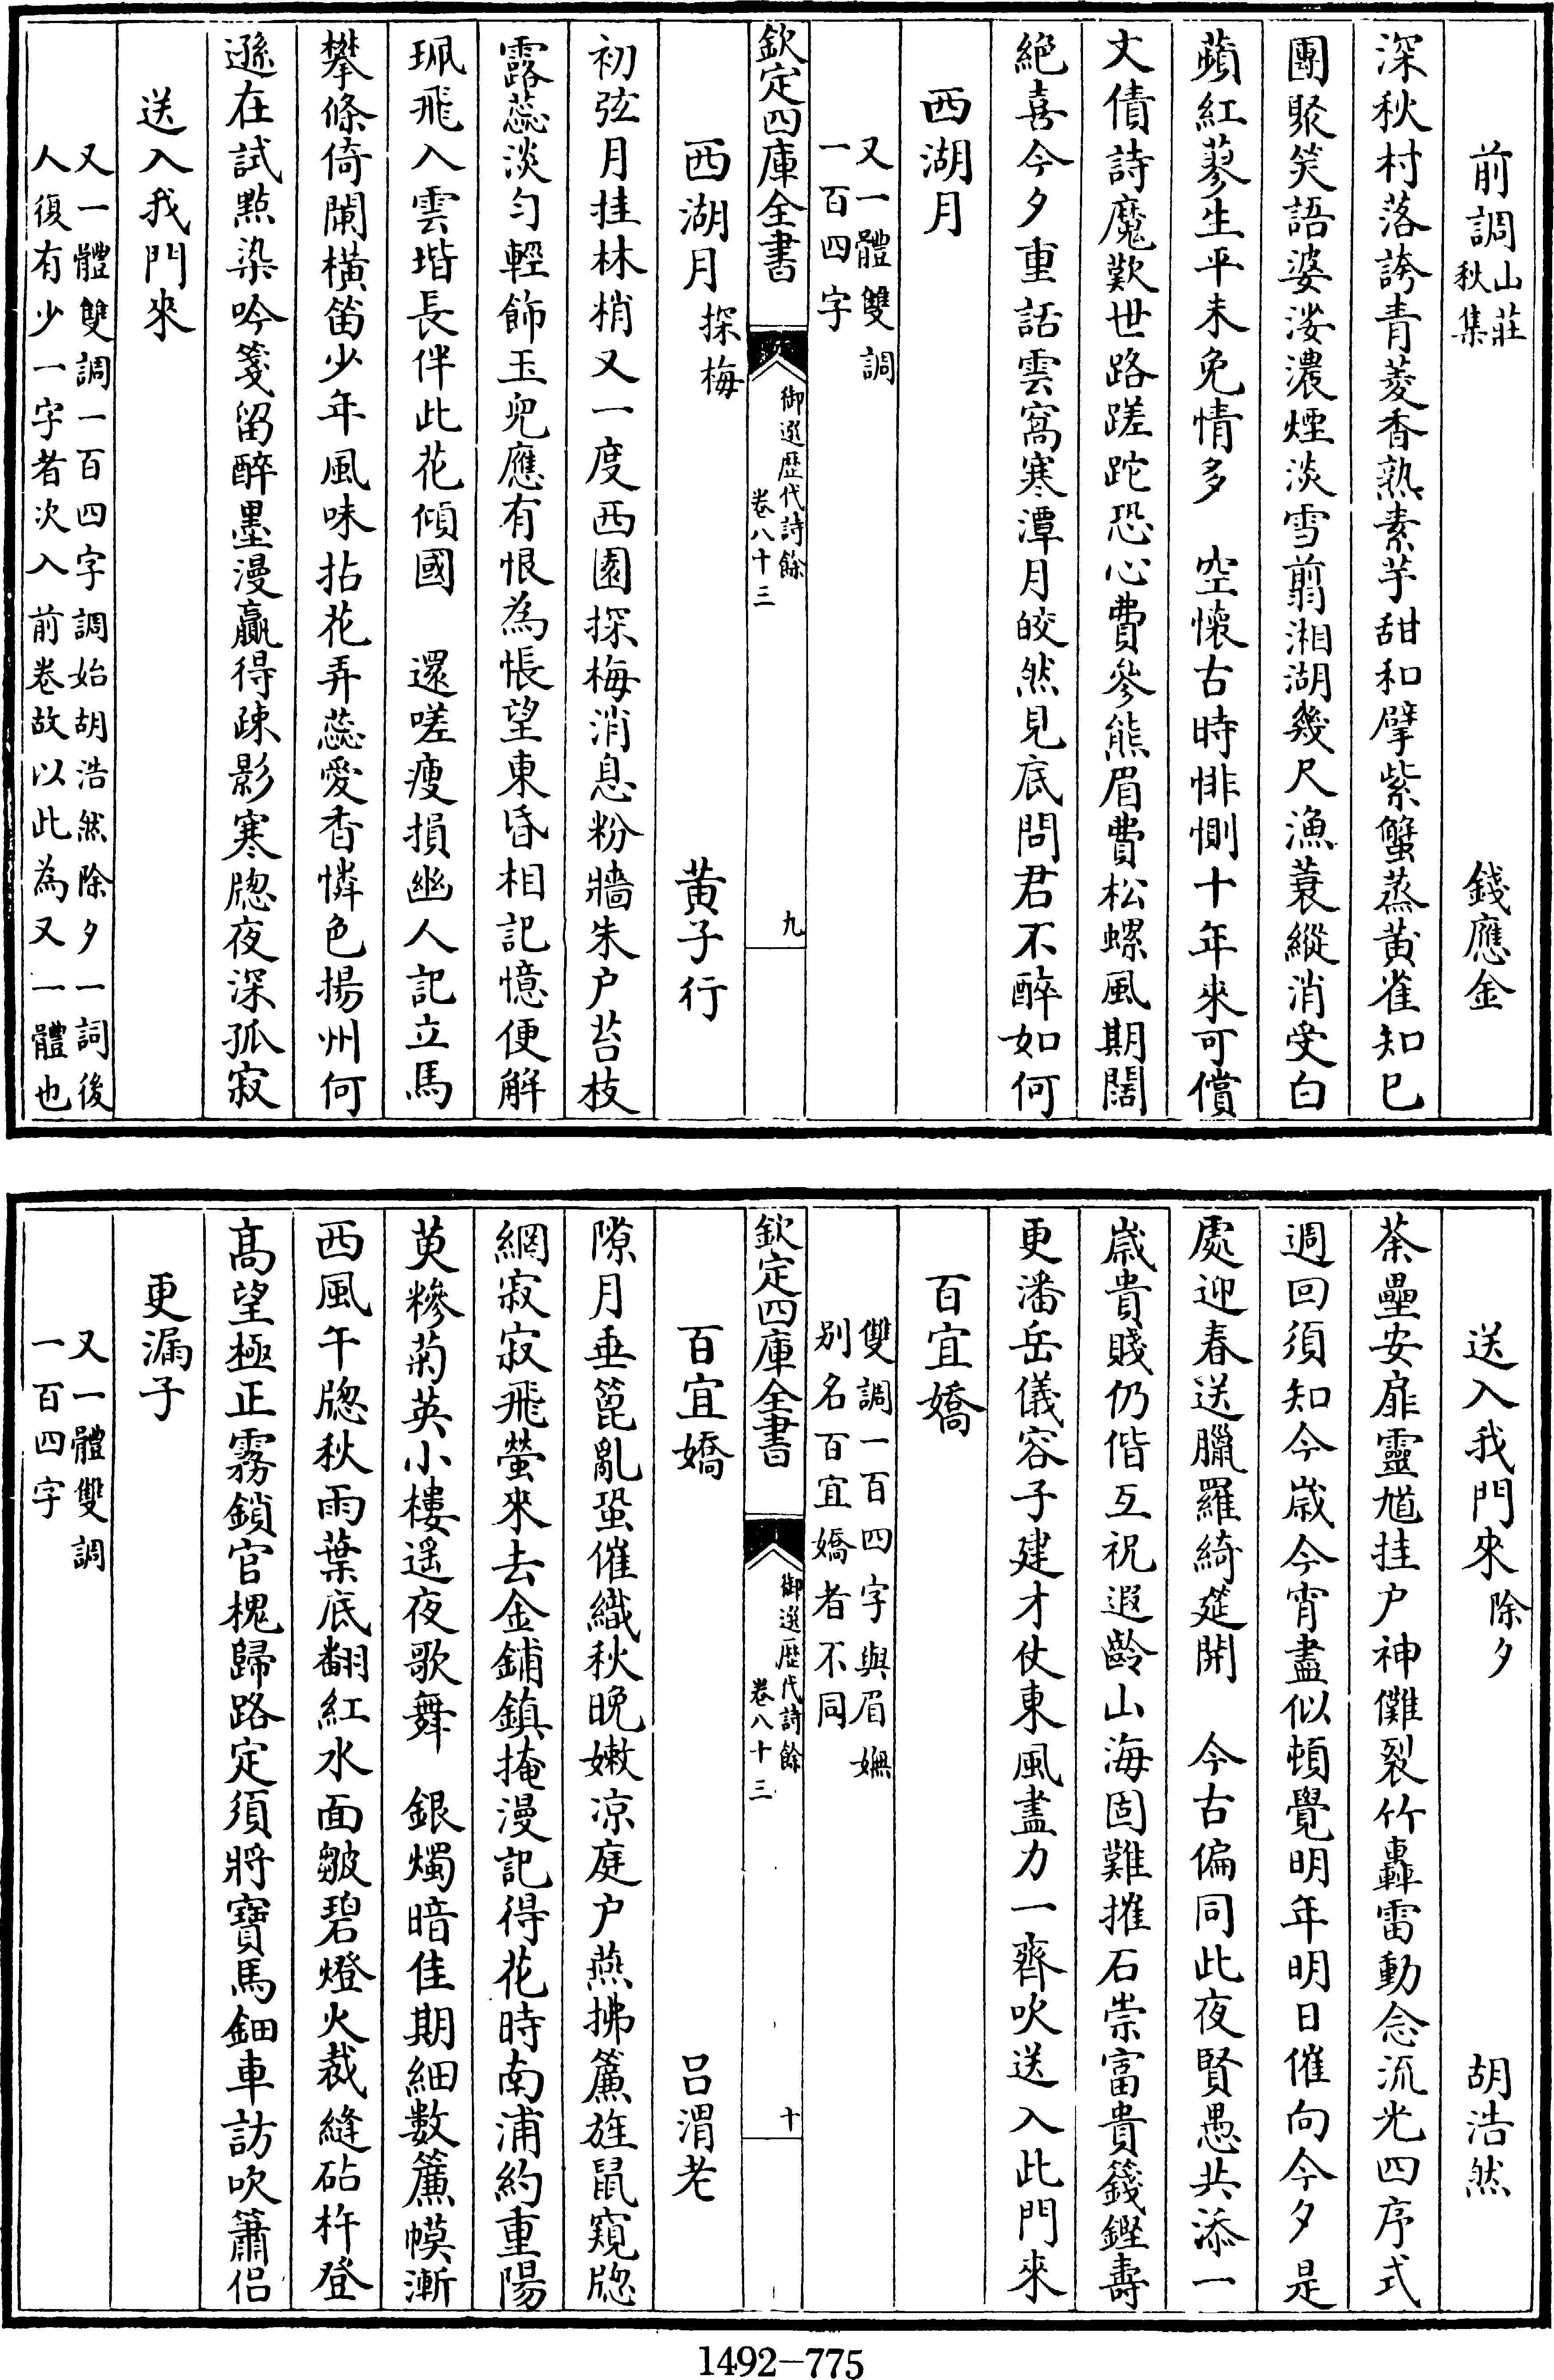 前調山莊秋集　錢應金
深秋村落誇青菱香熟素芋甜和擘紫蟹蒸黄雀知已
團聚笑語婆娑濃煙淡雪翦湘湖幾尺漁蓑縱消受白
蘋紅蓼生平未免情多　空懷古時悱惻十年來可償
文債詩魔歎世路蹉跎恐心費參熊眉費松螺風期闊
絕喜今夕重話雲窩寒潭月皎然見底問君不醉如何
西湖月
又一體雙調
一百四字
欽定四庫全書
御選歷代詩餘
卷八十三
九
西湖月探梅　黄子行
初弦月挂林梢又一度西園探梅消息粉牆朱户苔枝
露蕊淡匀輕飾玉兒應有恨為悵望東昏相記憶便解
珮飛入雲堦長伴此花傾國　還嗟瘦損幽人記立馬
攀條倚闌橫笛少年風味拈花弄蕊愛香憐色揚州何
遜在試點染吟箋留醉墨漫贏得疎影寒牕夜深孤寂
送入我門來
又一體雙調一百四字調始胡浩然除夕一詞後
人復有少一字者次入前卷故以此為又一體也
送入我門來除夕　胡浩然
荼壘安扉靈馗挂户神儺裂竹轟雷動念流光四序式
週回須知今歲今宵盡似頓覺明年明日催向今夕是
處迎春送臘羅綺筵開　今古偏同此夜賢愚共添一
歲貴賤仍偕互祝遐齡山海固難摧石崇富貴籛鏗壽
更潘岳儀容子建才仗東風盡力一齊吹送入此門來
百宜嬌
雙調一百四字與眉嫵
别名百宜嬌者不同
欽定四庫全書
御選歷代詩餘
卷八十三
十
百宜嬌　吕渭老
隙月垂篦亂蛩催織秋晚嫩凉庭户燕拂簾旌鼠窺牕
網寂寂飛螢來去金鋪鎮掩漫記得花時南浦約重陽
萸糝菊英小樓遥夜歌舞　銀燭暗佳期細數簾幙漸
西風午牕秋雨葉底翻紅水面皺碧燈火裁縫砧杵登
髙望極正霧鎖官槐歸路定須將寶馬鈿車訪吹簫侣
更漏子
又一體雙調
一百四字
1492—775